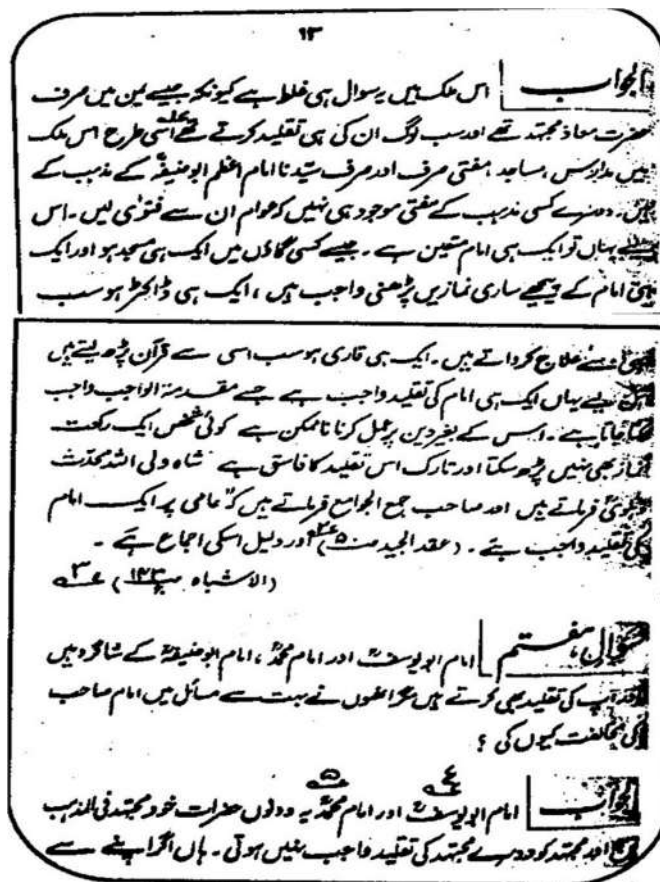 ۱۳
الجواب اس ملک میں یہ سوال ہی غلط ہے کیونکہ جیسے یمن میں صرف
حضرت معاذ مجتہد تھے اور سب لوگ ان کی ہی تقلید کرتے تھے اسی طرح اس ملک
میں مدارس، مساجد، مفتی صرف اور صرف سیدنا امام اعظم ابو حنیفہؒ کے مذہب کے
ہیں۔ دوسرے کسی مذہب کے مفتی موجود ہی نہیں کہ عوام ان سے فتویٰ لیں۔ اس
لئے یہاں تو ایک ہی امام متعین ہے۔ جیسے کسی گاؤں میں ایک ہی مسجد ہو اور ایک
ہی امام کے پیچھے ساری نمازیں پڑھنی واجب ہیں، ایک ہی ڈاکٹر ہو سب
سے علاج کرواتے ہیں۔ ایک ہی قاری ہو سب اسی سے قرآن پڑھ لیتے ہیں
یہاں ایک ہی امام کی تقلید واجب ہے جسے مقدمۃ الواجب واجب
جاتا ہے۔ اس کے بغیر دین پر عمل کرنا ناممکن ہے کوئی شخص ایک رکعت
نماز بھی نہیں پڑھ سکتا اور تارک اس تقلید کا فاسق ہے شاہ ولی اللہ محدث
دہلویؒ فرماتے ہیں اور صاحب جمع الجوامع فرماتے ہیں کہ عامی پر ایک امام
کی تقلید واجب ہے۔ (عقد الجید ص۵۰) اور دلیل اسکی اجماع ہے۔
(الاشباہ ص۱۴۳) ۳
سوال ہفتم امام ابو یوسفؒ اور امام محمدؒ، امام ابو حنیفہؒ کے شاگرد ہیں
کی تقلید بھی کرتے ہیں مگر انھوں نے بہت سے مسائل میں امام صاحب
کی مخالفت کیوں کی؟
۴ ۵
الجواب امام ابو یوسفؒ اور امام محمدؒ یہ دونوں حضرات خود مجتہد فی المذہب
اور مجتہد کو دوسرے مجتہد کی تقلید واجب نہیں ہوتی۔ ہاں اگر اپنے سے